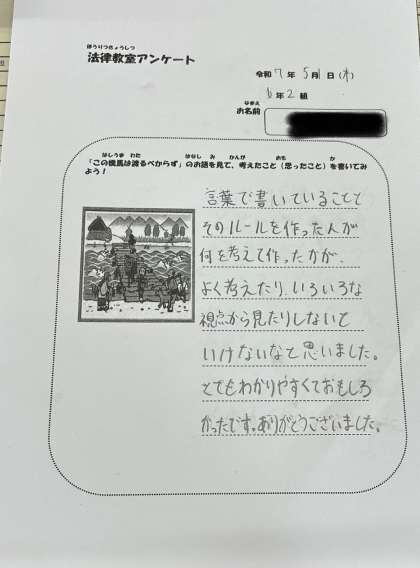 ほうりつきょうしつ
法律教室アンケート
令和7年5月1日(木)
6年2組
なまえ
お名前
はしうま わた はなし み かんが おも か
「この橋馬は渡るべからず」のお話を見て、考えたこと(思ったこと)を書いてみ
よう!
言葉で書いていることと
そのルールを作った人が
何を考えて作ったかが、
よく考えたり、いろいろな
視点から見たりしないと
いけないなと思いました。
とてもわかりやすくておもしろ
かったです。ありがとうございました。